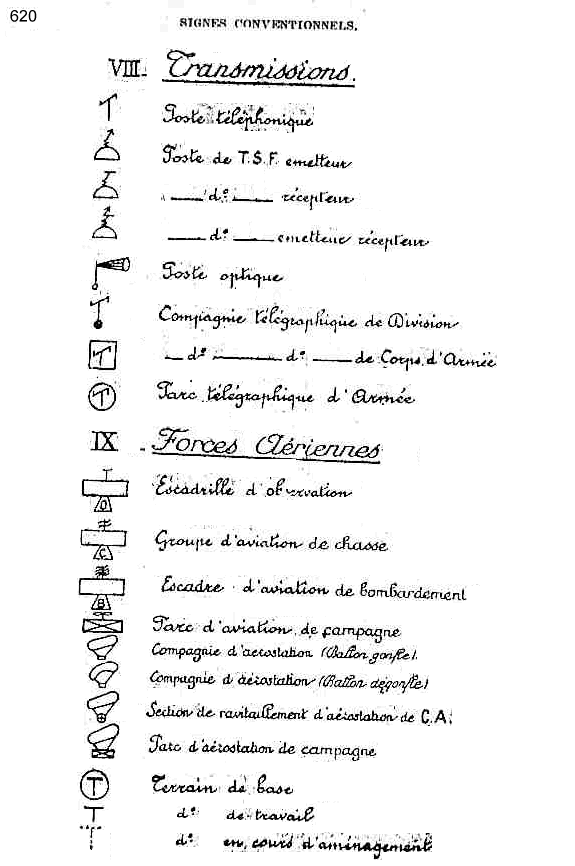 620
SIGNES CONVENTIONNELS.
VIII. Transmissions.
Poste téléphonique
Poste de T.S.F. emetteur
d° récepteur
d° emetteur récepteur
Poste optique
Compagnie télégraphique de Division
d° d° de Corps d'Armée
Parc télégraphique d'Armée
IX. Forces Aériennes
O Escadrille d'observation
C Groupe d'aviation de chasse
B Escadre d'aviation de bombardement
Parc d'aviation de campagne
Compagnie d'aérostation (Ballon gonflé).
Compagnie d'aérostation (Ballon dégonflé)
Section de ravitaillement d'aérostation de C.A.
Parc d'aérostation de campagne
T Terrain de base
T d° de travail
d° en cours d'aménagement